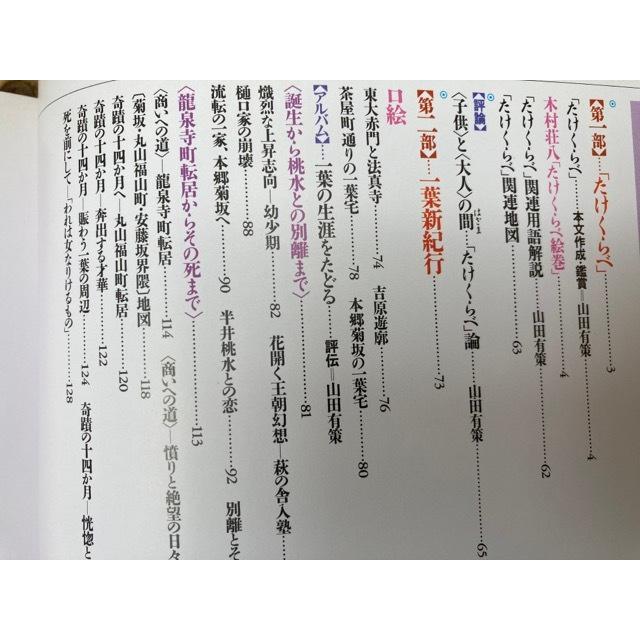 【第一部】…「たけくらべ」…3
「たけくらべ」…本文作成・鑑賞＝山田有策…4
木村荘八「たけくらべ絵巻」…4
「たけくらべ」関連用語解説…山田有策…62
「たけくらべ」関連地図…63
【評論】
〈子供〉と〈大人〉の間…「たけくらべ」論…山田有策…65
はざま
【第二部】…一葉新紀行…73
口絵
東大赤門と法真寺…74 吉原遊廓…76
茶屋町通りの一葉宅…78 本郷菊坂の一葉宅…80
【アルバム】…一葉の生涯をたどる…評伝＝山田有策
〈誕生から桃水との別離まで〉…81
熾烈な上昇志向―幼少期…82 花開く王朝幻想―萩の舎入塾…
樋口家の崩壊…88
流転の一家、本郷菊坂へ…90 半井桃水との恋…92 別離とそ
〈龍泉寺町転居からその死まで〉…113
〈商いへの道〉龍泉寺町転居…114 〈商いへの道〉―憤りと絶望の日々
［菊坂・丸山福山町・安藤坂界隈］地図…118
奇蹟の十四か月へ―丸山福山町転居…120
奇蹟の十四か月―奔出する才華…122
奇蹟の十四か月―賑わう一葉の周辺…124 奇蹟の十四か月―恍惚と
死を前にして―「われは女なりけるもの」…128